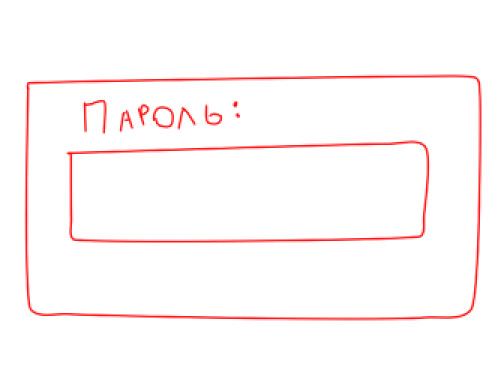 Пароль: